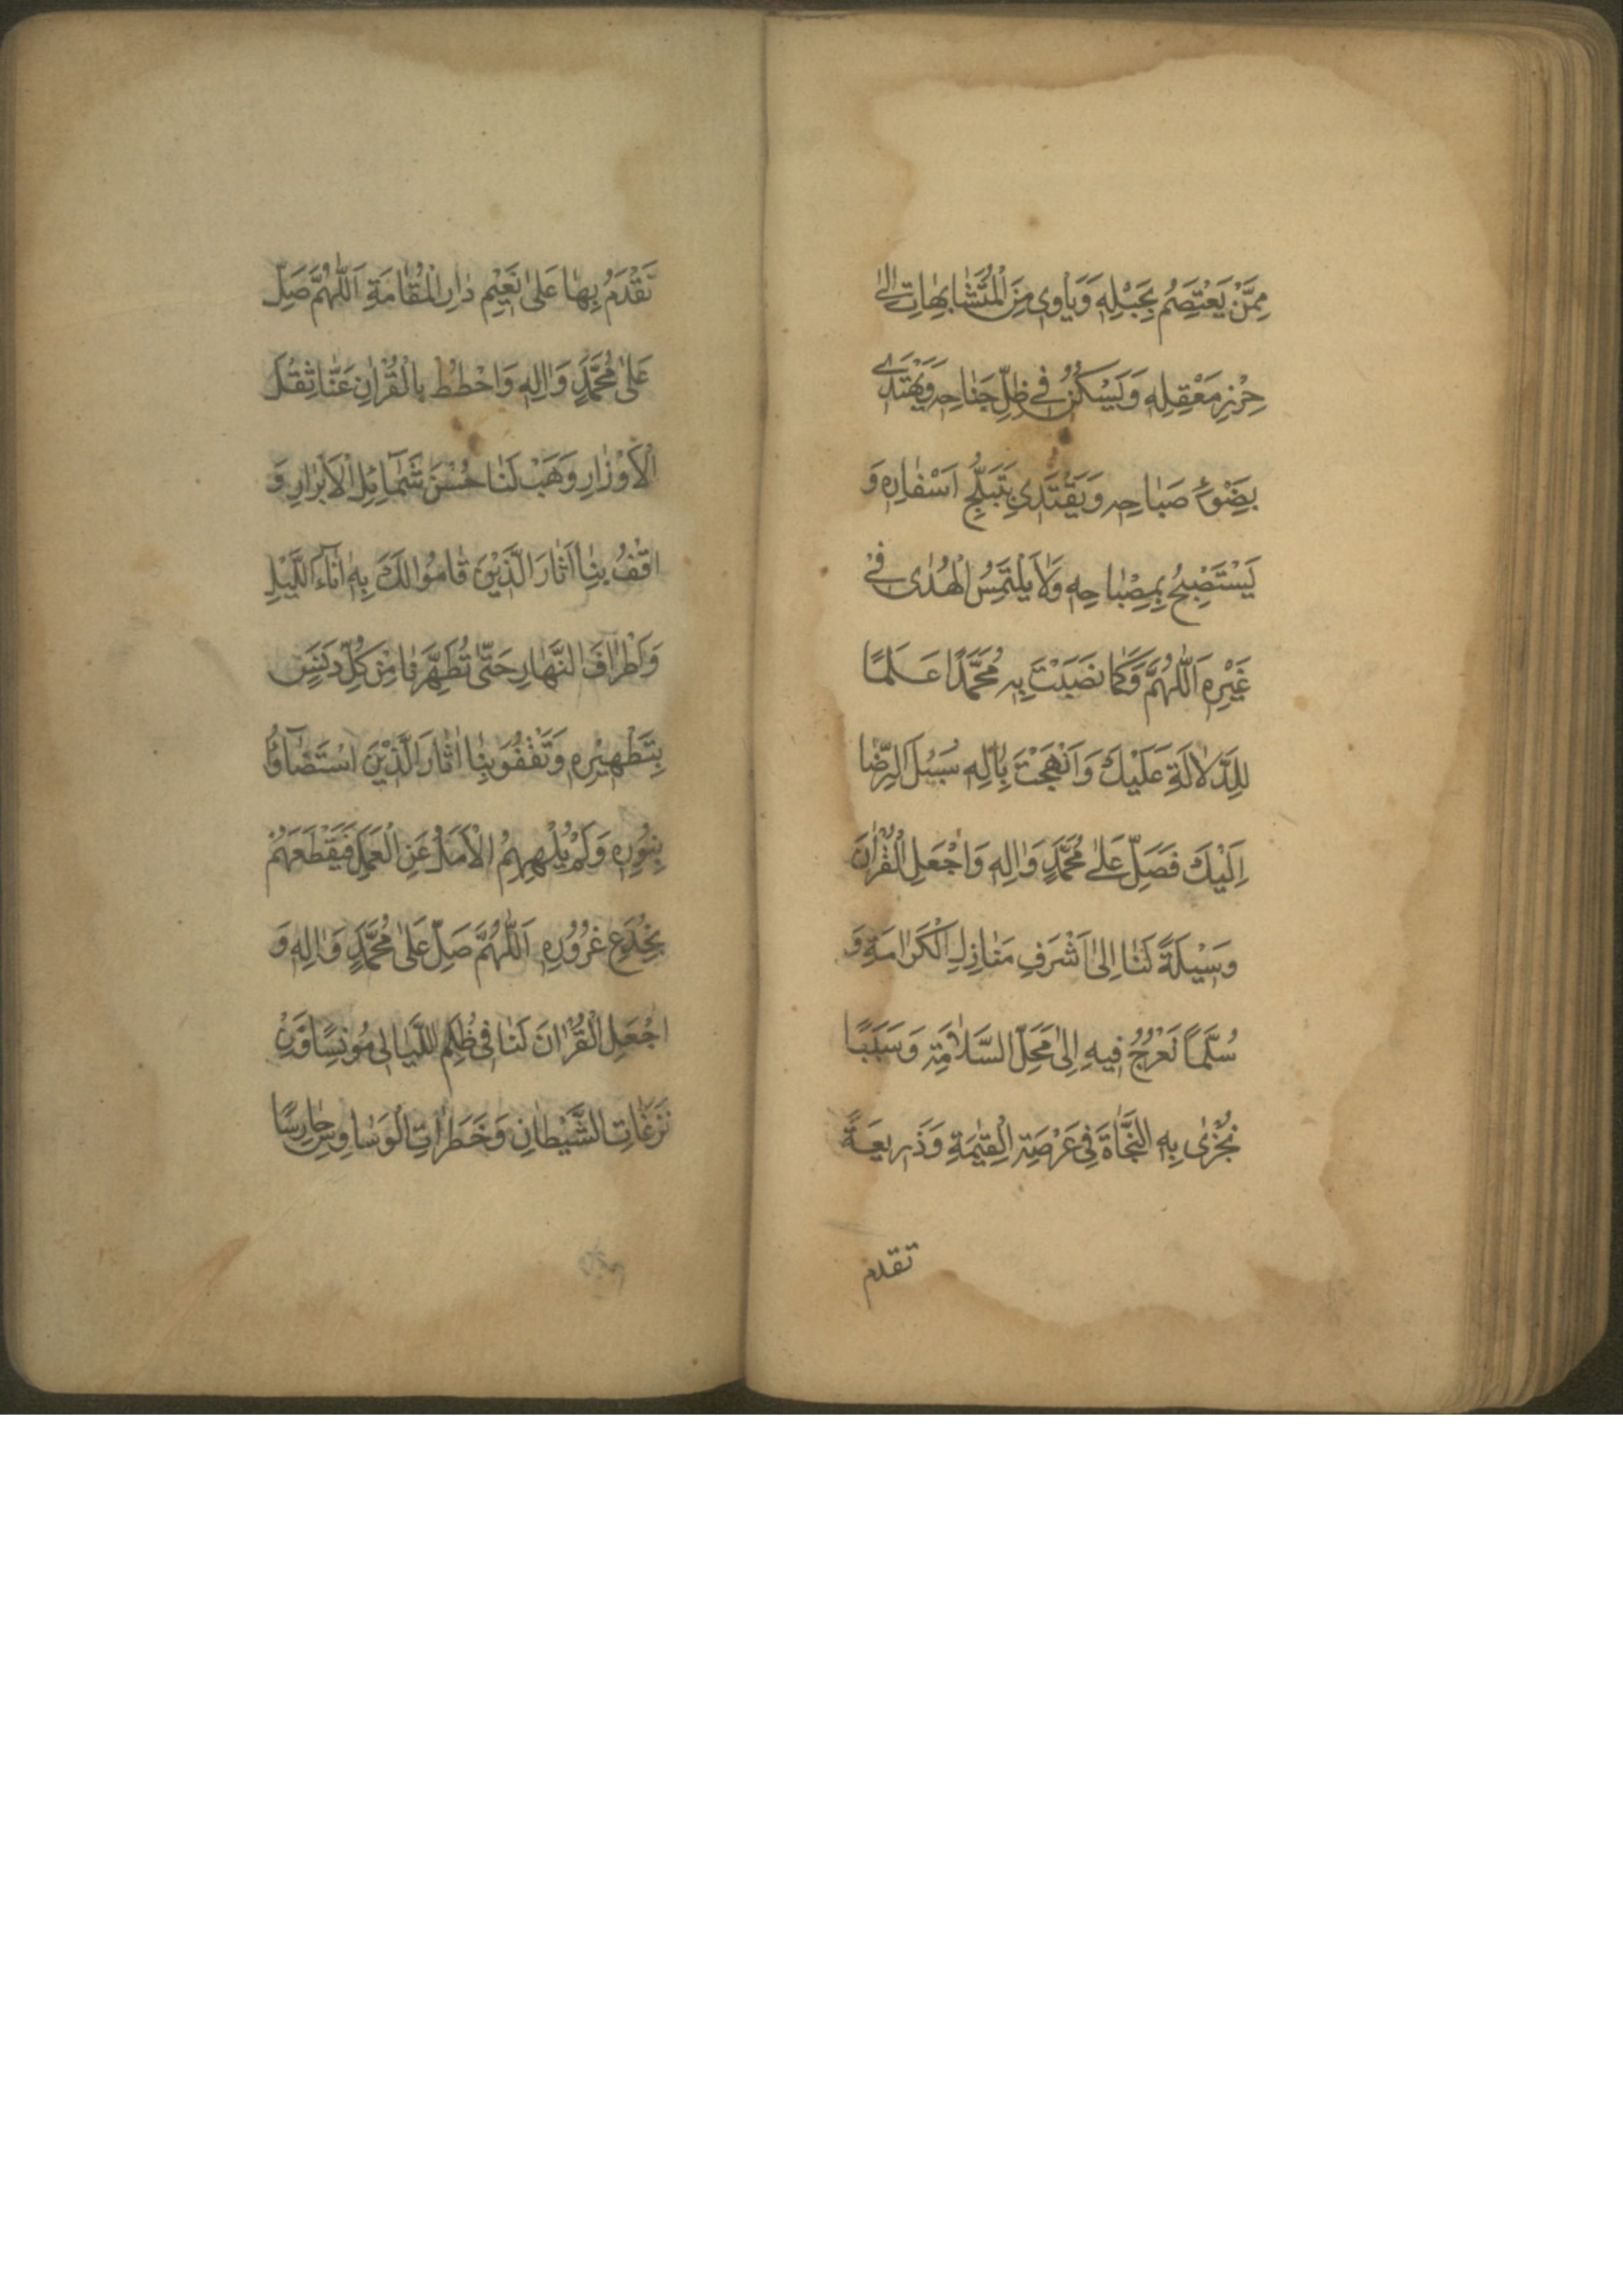 مِمَّنْ يَعْتَصِمُ بِحَبْلِهِ وَيَاْوِى مِنَ الْمُتَشَابِهَاتِ اِلىٰ
حِرْزِ مَعْقِلِهِ وَيَسْكُنُ فِى ظِلِّ جَنَاحِهِ وَيَهْتَدِى
بِضَوْءِ صَبَاحِهِ وَيَقْتَدِى بِتَبَلُّجِ اَسْفَارِهِ وَ
يَسْتَصْبِحُ بِمِصْبَاحِهِ وَلَا يَلْتَمِسُ الْهُدٰى فِىْ
غَيْرِهِ اَللّٰهُمَّ وَكَمَا نَصَبْتَ بِهِ مُحَمَّدًا عَلَمًا
لِلدَّلَالَةِ عَلَيْكَ وَاَنْهَجْتَ بِاٰلِهِ سُبُلَ الرِّضَا
اِلَيْكَ فَصَلِّ عَلىٰ مُحَمَّدٍ وَاٰلِهِ وَاجْعَلِ الْقُرْاٰنَ
وَسِيْلَةً لَنَا اِلىٰ اَشْرَفِ مَنَازِلِ الْكَرَامَةِ وَ
سُلَّمًا نَعْرُجُ فِيهِ اِلىٰ مَحَلِّ السَّلَامَةِ وَسَبَبًا
نُجْزٰى بِهِ النَّجَاةَ فِى عَرْصَةِ الْقِيٰمَةِ وَذَرِيعَةً
تقدم
نَقْدَمُ بِهَا عَلىٰ نَعِيْمِ دَارِ الْمُقَامَةِ اَللّٰهُمَّ صَلِّ
عَلىٰ مُحَمَّدٍ وَاٰلِهِ وَاحْطُطْ بِالْقُرْاٰنِ عَنَّا ثِقْلَ
الْاَوْزَارِ وَهَبْ لَنَا حُسْنَ شَمَآئِلِ الْاَبْرَارِ وَ
اقْفُ بِنَا اٰثَارَ الَّذِيْنَ قَامُوا لَكَ بِهِ اٰنَآءَ اللَّيْلِ
وَاَطْرَافَ النَّهَارِ حَتّٰى تُطَهِّرَنَا مِنْ كُلِّ دَنَسٍ
بِتَطْهِيْرِهِ وَتَقْفُوَ بِنَا اٰثَارَ الَّذِيْنَ اسْتَضَآؤُا
بِنُوْرِهِ وَلَمْ يُلْهِهِمُ الْاَمَلُ عَنِ الْعَمَلِ فَيَقْطَعَهُمْ
بِخُدَعِ غُرُوْرِهِ اَللّٰهُمَّ صَلِّ عَلىٰ مُحَمَّدٍ وَاٰلِهِ وَ
اجْعَلِ الْقُرْاٰنَ لَنَا فِى ظُلَمِ اللَّيَالِى مُونِسًا وَمِنْ
نَزَغَاتِ الشَّيْطَانِ وَخَطَرَاتِ الْوَسَاوِسِ حَارِسًا